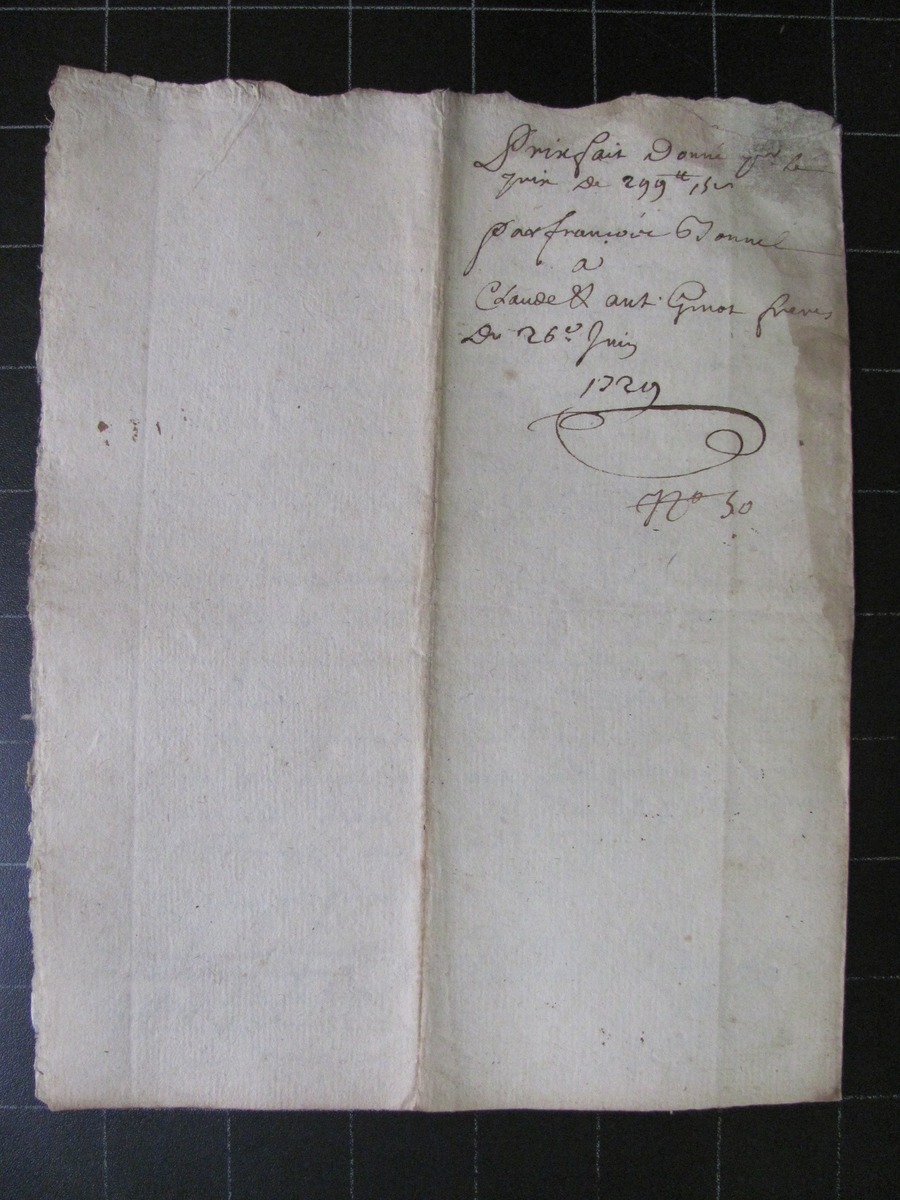 Prixfait Donné pour le
prix de 299 tt 15 s
par françois Bonnel
a
Claude & ant. Ginot freres
Du 26e Juin
1729
No 50